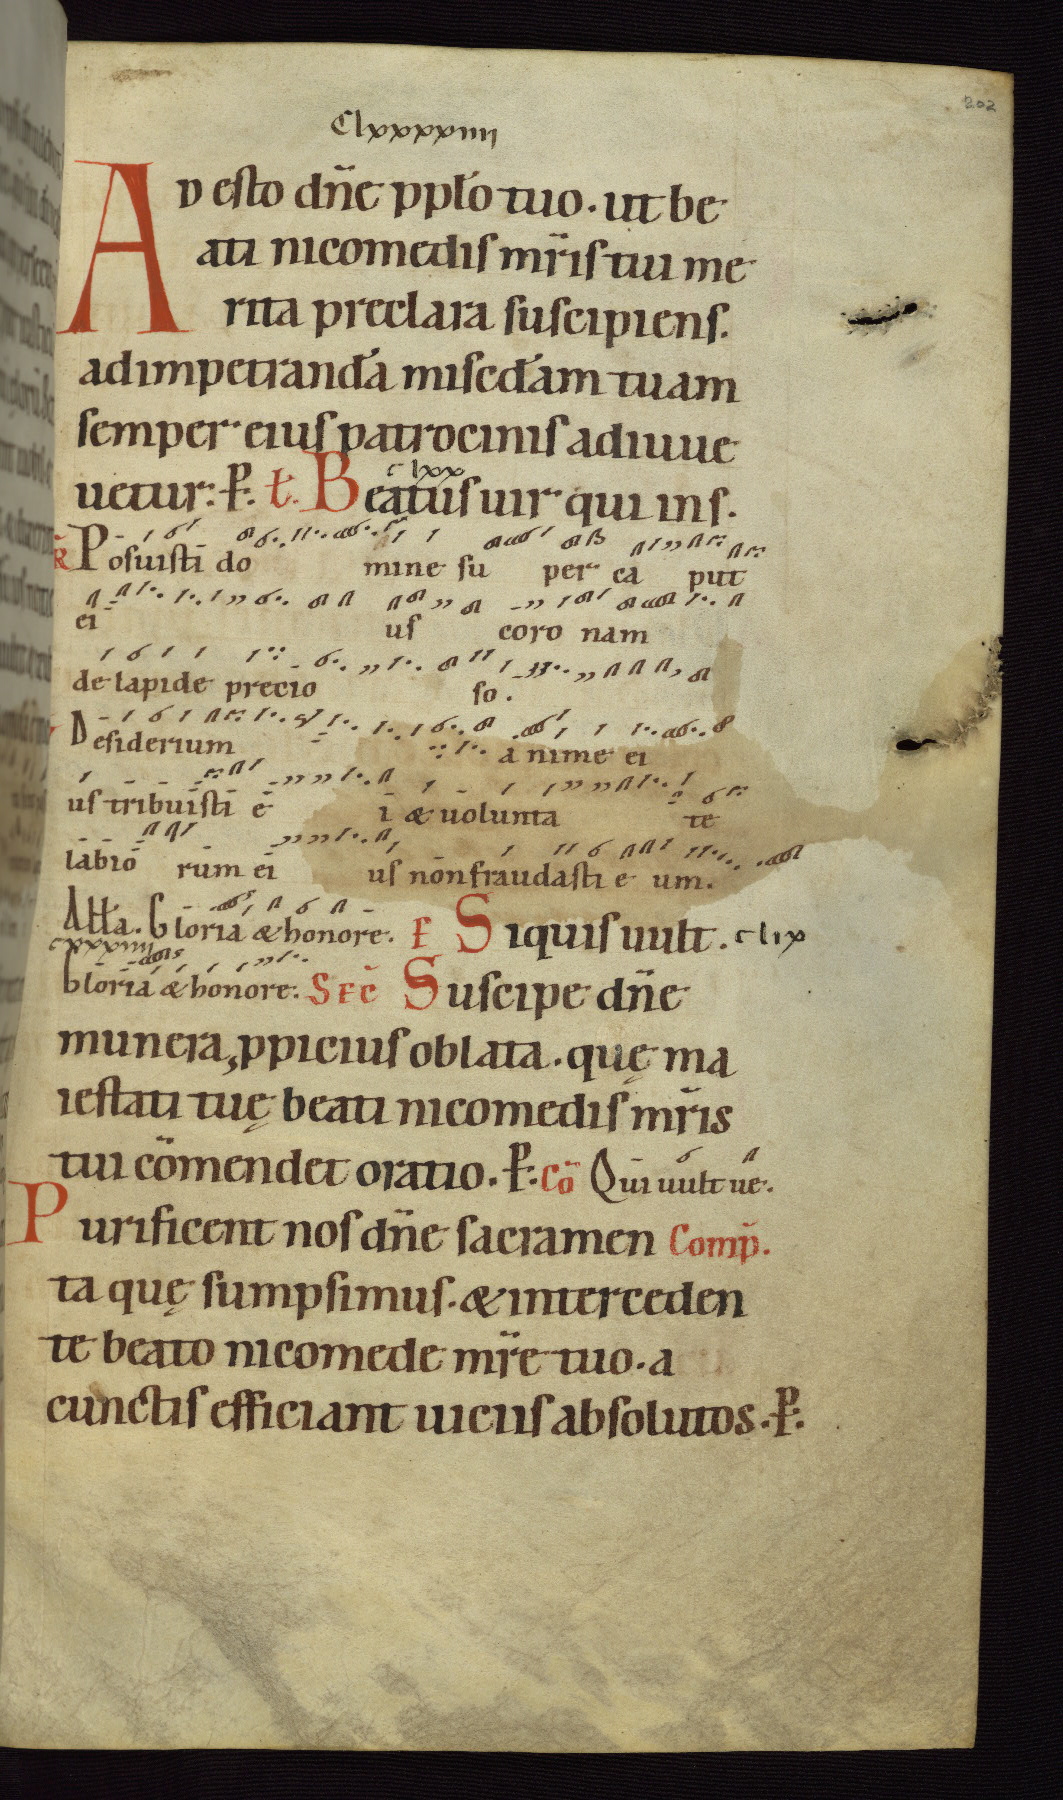 202
Clxxxxiiii
Adesto dn̄e pplo tuo. ut be
ati nicomedis mr̄is tui me
rita preclara suscipiens.
ad impetrandā misedām tuam
semper eius patrociniis adiuue
uetur: P. t. Beatus uir qui in s.
clxx
R̄ Posuisti do mine su per ca put
ei us coro nam
de lapide precio so.
Desiderium a nime ei
us tribuisti e i & uolunta te
labio rum ei us non fraudasti e um.
Alła. Gloria & honore. E Siquis uult. clix
cxxxiiii
Gloria & honore. SEC̄ Suscipe dn̄e
munera, ppicius oblata. quę ma
iestati tuę beati nicomedis mr̄is
tui cōmendet oratio. P. Cō Qui uult ue.
Purificent nos dn̄e sacramen Comp̄.
ta quę sumpsimus. & interceden
te beato nicomede mr̄e tuo. a
cunctis efficiant uiciis absolutos. P.